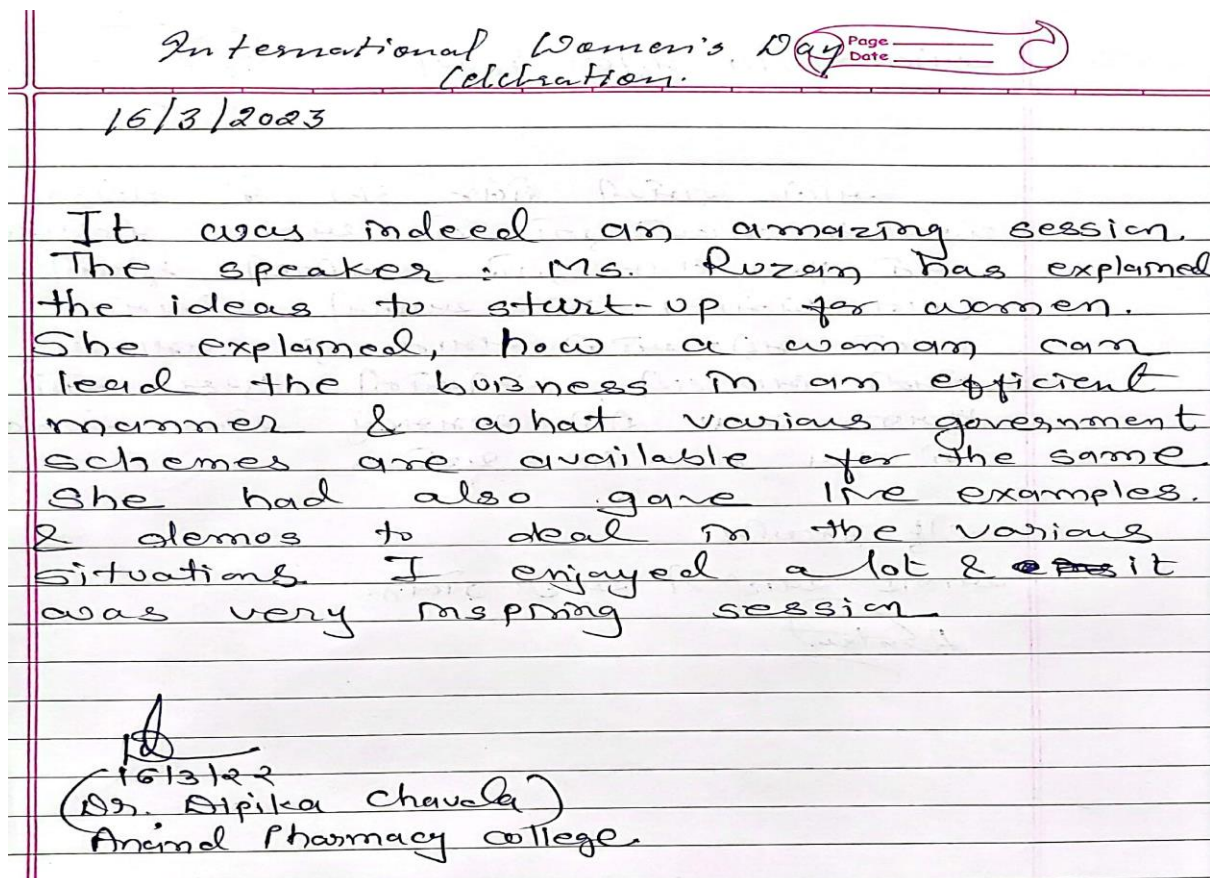 International Women's Day
Page
Date
Celebration.
16/3/2023
It was indeed an amazing session.
The speaker : Ms. Ruzan has explained
the ideas to start-up for women.
She explained, how a woman can
lead the business in an efficient
manner & what various government
schemes are available for the same
She had also gave live examples.
& demos to deal in the various
situations. I enjoyed a lot & it
was very inspring session
16/3/22
(Dr. Dipika Chavda)
Anand Pharmacy college.